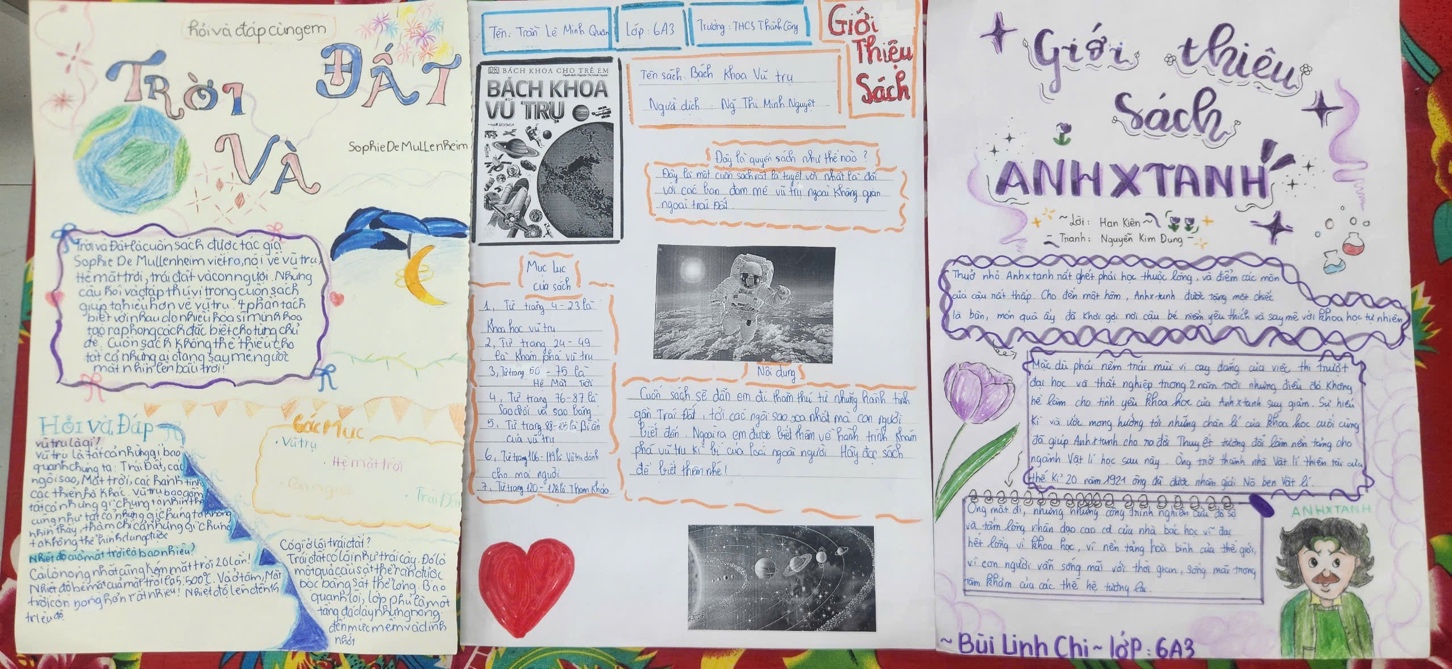 hỏi và đáp cùng em
TRỜI
VÀ
ĐẤT
Sophie De Mullenheim
Trời và Đất là cuốn sách được tác giả
Sophie De Mullenheim viết ra, nói về vũ trụ,
Hệ mặt trời, trái đất và con người. Những
câu hỏi và đáp thú vị trong cuốn sách
giúp ta hiểu hơn về vũ trụ. 4 phần tách
biệt với nhau do nhiều họa sĩ minh họa
tạo ra phong cách đặc biệt cho từng chủ
đề. Cuốn sách không thể thiếu cho
tất cả những ai đang say mê ngước
mắt nhìn lên bầu trời!
Hỏi và Đáp
vũ trụ là gì?
vũ trụ là tất cả những gì bao
quanh chúng ta: Trái Đất, các
ngôi sao, Mặt trời, các hành tinh
các thiên hà khác. vũ trụ bao gồm
tất cả những gì chúng ta nhìn thấy
cũng như tất cả những gì chúng ta không
nhìn thấy, thậm chí cả những gì chúng
ta không thể hình dung được
Nhiệt độ của mặt trời là bao nhiêu?
Cái lò nóng nhất cũng kém mặt trời 20 lần!
Nhiệt độ bề mặt của mặt trời là 5,500°C. Và ở tâm, Mặt
trời còn nóng hơn rất nhiều! Nhiệt độ lên đến 15
triệu độ
Các Mục
Vũ trụ
Hệ mặt trời
Con người
Trái Đất
Có gì ở lõi trái đất?
Trái đất có lõi như trái cây. Đó là
một quả cầu sắt thể rắn được
bọc bằng sắt thể lỏng. Bao
quanh lõi, lớp phủ là một
tầng đá dày nhưng nóng
đến mức mềm và dính
nhớt
Tên: Trần Lê Minh Quân
Lớp: 6A3
Trường: THCS Thành Công
Giới
Thiệu
Sách
BÁCH KHOA CHO TRẺ EM
BÁCH KHOA
VŨ TRỤ
Tên sách Bách Khoa Vũ trụ
Người dịch Ng Thị Minh Nguyệt
Đây là quyển sách như thế nào?
Đây là một cuốn sách rất là tuyệt vời nhất là đối
với các bạn đam mê vũ trụ ngoài không gian
ngoài trái Đất
Mục lục
của sách
1, Từ trang 4-23 là
Khoa học vũ trụ
2, Từ trang 24-49
là Khám phá vũ trụ
3, Từ trang 50-75 là
Hệ Mặt Trời
4, Từ trang 76-87 là
Sao chổi và sao băng
5, Từ trang là Bí ẩn
của vũ trụ
6, Từ trang là Vũ trụ dành
cho mọi người
7, Từ trang là Tham Khảo
Nội dung
Cuốn sách sẽ dẫn em đi thăm thú từ những hành tinh
gần Trái Đất, tới các ngôi sao xa nhất mà con người
biết đến. Ngoài ra em được biết thêm về hành trình khám
phá vũ trụ kì bí của loài người. Hãy đọc sách
để biết thêm nhé!
Giới thiệu
Sách
ANHXTANH
~ Lời: Han Kiên
~ Tranh: Nguyễn Kim Dung ~
Thuở nhỏ Anhxtanh rất ghét phải học thuộc lòng, và điểm các môn
của cậu rất thấp. Cho đến một hôm, Anhxtanh được tặng một chiếc
la bàn, món quà ấy đã khơi gợi nơi cậu bé niềm yêu thích và say mê với khoa học tự nhiên
Mặc dù phải nếm trải mùi vị cay đắng của việc thi trượt
đại học và thất nghiệp trong 2 năm trời nhưng điều đó không
hề làm cho tình yêu khoa học của Anhxtanh suy giảm. Sự hiếu
kì và ước mong hướng tới những chân lí của khoa học cuối cùng
đã giúp Anhxtanh cho ra đời Thuyết tương đối làm nền tảng cho
ngành Vật lí học sau này. Ông trở thành nhà Vật lí thiên tài của
thế kỉ 20 năm 1921 ông đã được nhận giải Nô ben Vật lí.
Ông mất đi, nhưng những công trình nghiên cứu đồ sộ
và tấm lòng nhân đạo cao cả của nhà bác học vĩ đại
hết lòng vì khoa học, vì nền tảng hoà bình của thế giới,
vì con người vẫn sống mãi với thời gian, sống mãi trong
tâm khảm của các thế hệ tương lai.
ANHXTANH
~ Bùi Linh Chi ~ lớp: 6A3